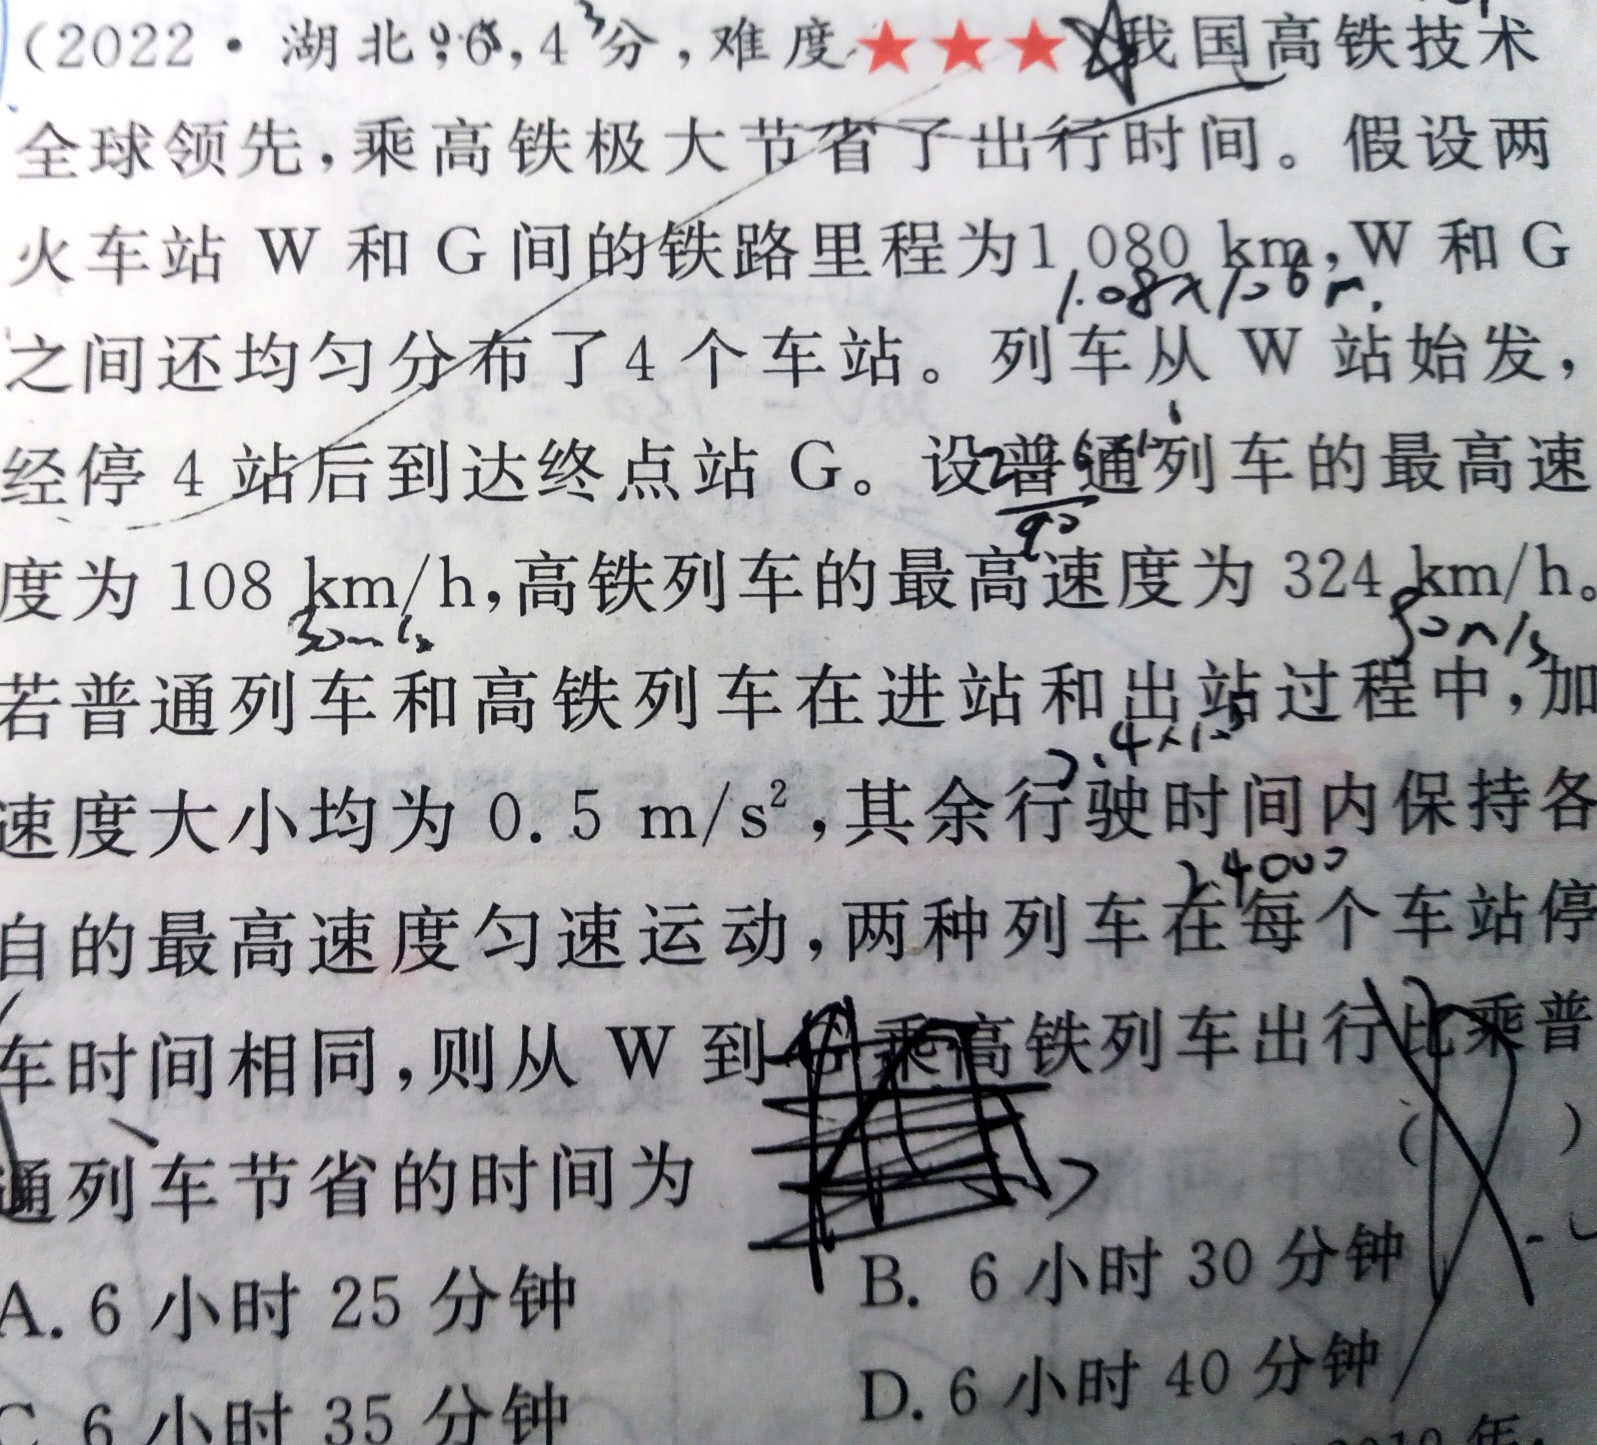 (2022·湖北,6,4分,难度★★★)我国高铁技术
全球领先,乘高铁极大节省了出行时间。假设两
火车站 W 和 G 间的铁路里程为1 080 km,W 和 G
1.08×10⁶m.
之间还均匀分布了4 个车站。列车从 W 站始发,
经停 4 站后到达终点站 G。设普通列车的最高速
90
度为 108 km/h,高铁列车的最高速度为 324 km/h。
30m/s
90m/s
若普通列车和高铁列车在进站和出站过程中,加
速度大小均为 0.5 m/s²,其余行驶时间内保持各
24000
自的最高速度匀速运动,两种列车在每个车站停
车时间相同,则从 W 到G乘高铁列车出行比乘普
通列车节省的时间为 ( )
A. 6 小时 25 分钟 B. 6 小时 30 分钟
C 6 小时 35 分钟 D. 6 小时 40 分钟